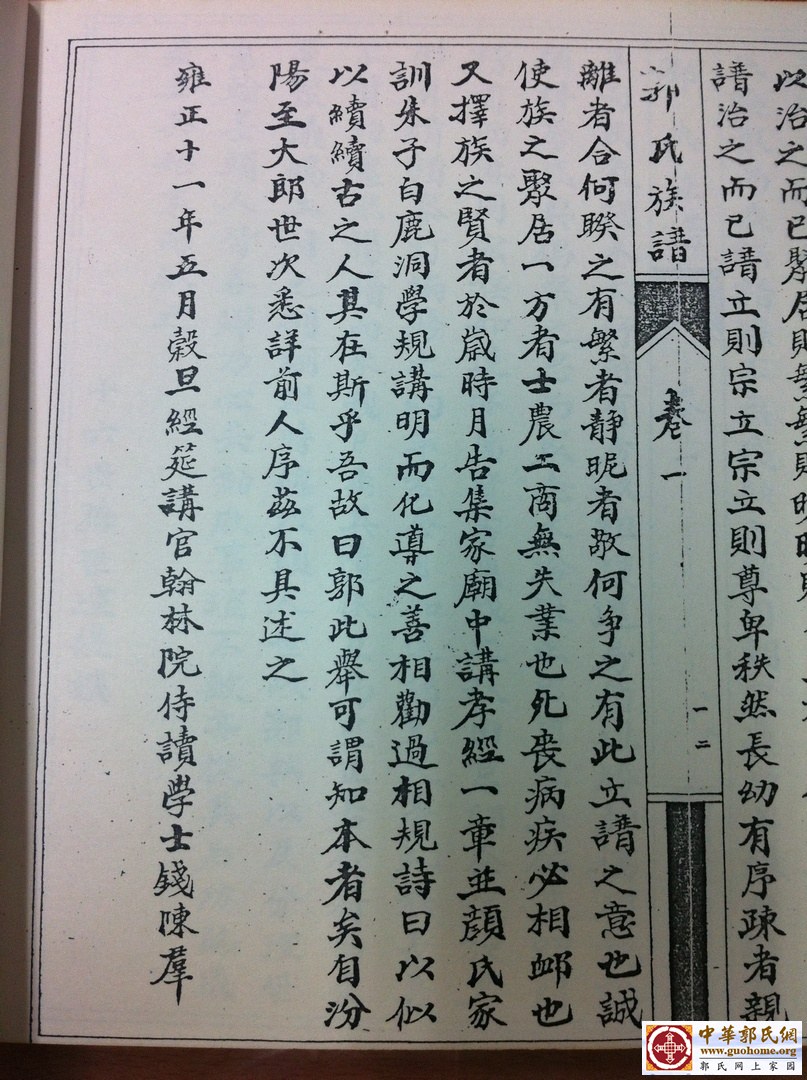 以治之而已聚居則繁繁則
譜治之而已譜立則宗立宗立則尊卑秩然長幼有序疎者親
郭氏族譜
卷一
一二
離者合何睽之有繁者靜昵者敬何争之有此立譜之意也誠
使族之聚居一方者士農工商無失業也死喪病疾必相䘏也
又擇族之賢者於歲時月告集家廟中講孝經一章並顔氏家
訓朱子白鹿洞學規講明而化導之善相勸過相規詩曰以似
以續續古之人其在斯乎吾故曰郭此舉可謂知本者矣自汾
陽至大郎世次悉詳前人序茲不具述之
雍正十一年五月穀旦經筵講官翰林院侍讀學士錢陳羣
中華郭氏網
www.guohome.org
郭氏网上家园